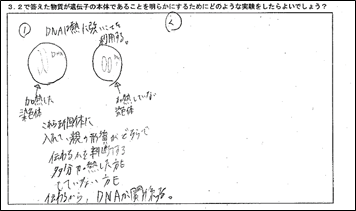 3.2で答えた物質が遺伝子の本体であることを明らかにするためにどのような実験をしたらよいでしょう？
①
DNAは熱に強いことを
利用する。
加熱した
染色体
加熱していない
染色体
これらを個体に
入れて、親の形質がどうやって
伝わるかを判断する
多分加熱した方も
していない方も
伝わるから、DNAが関係ある。